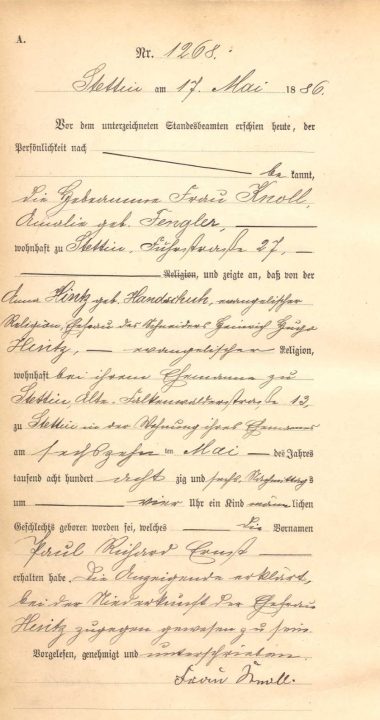 A.
Nr. 1268.
Stettin am 17. Mai 1886.
Vor dem unterzeichneten Standesbeamten erschien heute, der
Persönlichkeit nach
bekannt,
die Hebeamme Frau Knoll,
Amalie geb. Tengler,
wohnhaft zu Stettin, Fuhrstraße 27,
Religion, und zeigte an, daß von der
Anna Hintz geb. Handschuh, evangelischer
Religion, Ehefrau des Schneiders Heinrich Hugo
Hintz, — evangelischer Religion,
wohnhaft bei ihrem Ehemanne zu
Stettin, Alte-Falkenwalderstraße 13,
zu Stettin in der Wohnung ihres Ehemanns
am sechszehn ten Mai des Jahres
tausend acht hundert acht zig und sechs Nachmittags
um vier Uhr ein Kind männlichen
Geschlechts geboren worden sei, welches die Vornamen
Paul Richard Ernst
erhalten habe. Die Anzeigende erklärt,
bei der Niederkunft der Ehefrau
Hintz zugegen gewesen zu sein.
Vorgelesen, genehmigt und unterschrieben.
Frau Knoll.